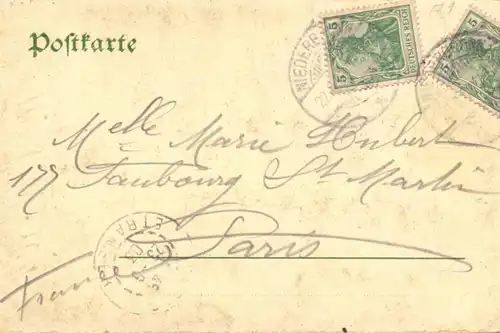 Postkarte
5
DEUTSCHES REICH
5
Melle Marie Hubert
177 Faubourg St Martin
Paris
France